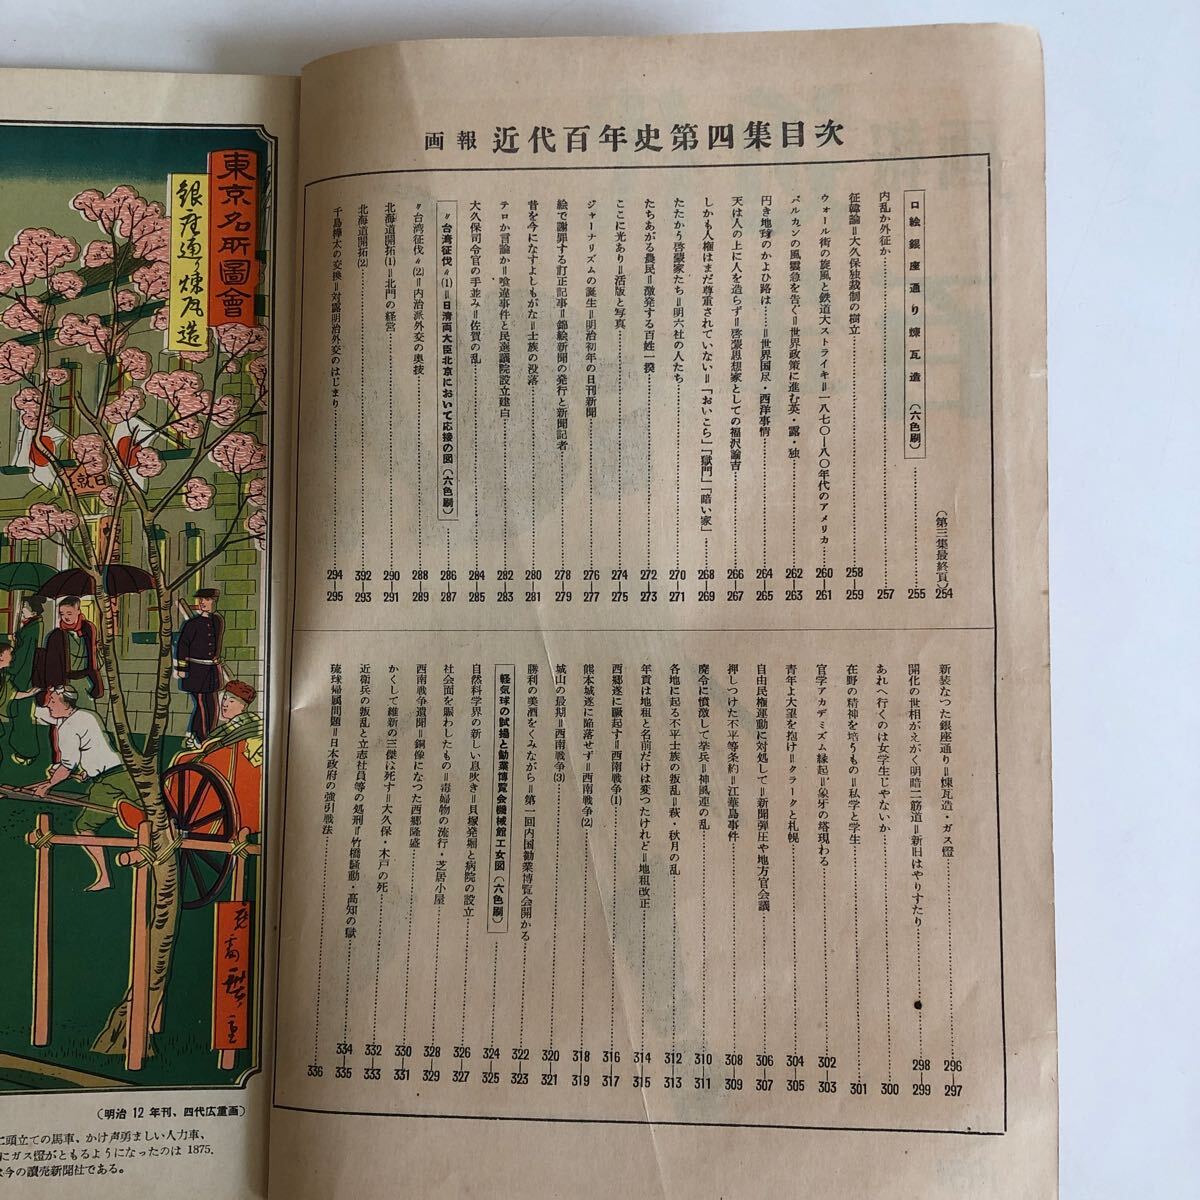 画報 近代百年史第四集目次
(第三集最終頁)254
口絵銀座通り煉瓦造 (六色刷)……255
内乱か外征か……257
征韓論=大久保独裁制の樹立……258 259
ウォール街の旋風と鉄道大ストライキ=一八七〇―八〇年代のアメリカ 260 261
バルカンの風雲急を告ぐ=世界政策に進む英・露・独……262 263
円き地球のかよひ路は……=世界国尽・西洋事情……264 265
天は人の上に人を造らず=啓蒙思想家としての福沢諭吉……266 267
しかも人権はまだ尊重されていない=「おいこら」「獄門」「暗い家」……268 269
たたかう啓蒙家たち=明六社の人たち……270 271
たちあがる農民=激発する百姓一揆……272 273
ここに光あり=活版と写真……274 275
ジャーナリズムの誕生=明治初年の日刊新聞……276 277
絵で謝罪する訂正記事=錦絵新聞の発行と新聞記者……278 279
昔を今になすよしもがな=士族の没落……280 281
テロか言論か=喰違事件と民選議院設立建白……282 283
大久保司令官の手並み=佐賀の乱……284 285
〃台湾征伐〃(1)=日清両大臣北京において応接の図(六色刷)……286 287
〃台湾征伐〃(2)=内治派外交の奥技……288 289
北海道開拓(1)=北門の経営……290 291
北海道開拓(2)……392 293
千島樺太の交換=対露明治外交のはじまり……294 295
新装なつた銀座通り=煉瓦造・ガス燈……296 297
開化の世相がえがく明暗二筋道=新旧はやりすたり……298 299
あれへ行くのは女学生じやないか……300
在野の精神を培うもの=私学と学生……301
官学アカデミズム縁起=象牙の塔現わる……302 303
青年よ大望を抱け=クラークと札幌……304 305
自由民権運動に対処して=新聞弾圧や地方官会議……306 307
押しつけた不平等条約=江華島事件……308 309
廃令に憤激して挙兵=神風連の乱……310 311
各地に起る不平士族の叛乱=萩・秋月の乱……312 313
年貢は地租と名前だけは変つたけれど=地租改正……314 315
西郷遂に蹶起す=西南戦争(1)……316 317
熊本城遂に陥落せず=西南戦争(2)……318 319
城山の最期=西南戦争(3)……320 321
勝利の美酒をくみながら=第一回内国勧業博覧会開かる……322 323
軽気球の試揚と勧業博覧会機械館工女図(六色刷)……324 325
自然科学界の新しい息吹き=貝塚発掘と病院の設立……326 327
社会面を賑わしたもの=毒婦物の流行・芝居小屋……328 329
西南戦争遺聞=銅像になつた西郷隆盛……330 331
かくして維新の三傑は死す=大久保・木戸の死……332 333
近衛兵の叛乱と立志社員等の処刑=竹橋騒動・高知の獄……334 335
琉球帰属問題=日本政府の強引戦法……336
東京名所圖會
銀座通り煉瓦造
廣重
(明治12年刊、四代広重画)
二頭立ての馬車、かけ声勇ましい人力車、
にガス燈がともるようになったのは 1875.
は今の讀売新聞社である。